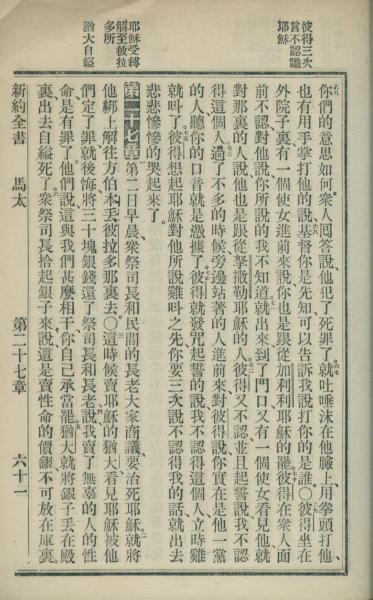 彼得三次
言不認識
耶穌
耶穌受縛
解至彼拉
多所
猶大自縊
你們的意思如何衆人回答說他犯了死罪了就吐唾沫在他臉上用拳頭打他
也有用手掌打他的說基督你是先知可以告訴我說打你的是誰〇彼得坐在
外院子裏有一個使女進前來說你也是跟從加利利耶穌的罷彼得在衆人面
前不認對他說你所說的我不知道就出來到了門口又有一個使女看見他就
對那裏的人說他也是跟從拏撒勒耶穌的人彼得又不認並且起誓說我不認
得這個人過了不多的時候旁邊站著的人進前來對彼得說你實在是他一黨
的人聽你的口音就是憑據了彼得就發咒起誓的說我不認得這個人立時雞
就呌了彼得想起耶穌對他所說雞呌之先你要三次說不認得我的話就出去
悲悲慘慘的哭起來了
第二十七章第二日早晨衆祭司長和民間的長老大家商議要治死耶穌就將
他綁上解往方伯本丟彼拉多那裏去〇這時候賣耶穌的猶大看見耶穌被他
們定了罪就後悔將三十塊銀錢還了祭司長和長老說我賣了無辜的人的性
命是有罪了他們說這與我們甚麼相干你自己承當罷猶大就將銀子丟在殿
裏出去自縊死了衆祭司長拾起銀子來說這是賣性命的價銀不可放在庫裏
新約全書 馬太 第二十七章 六十一